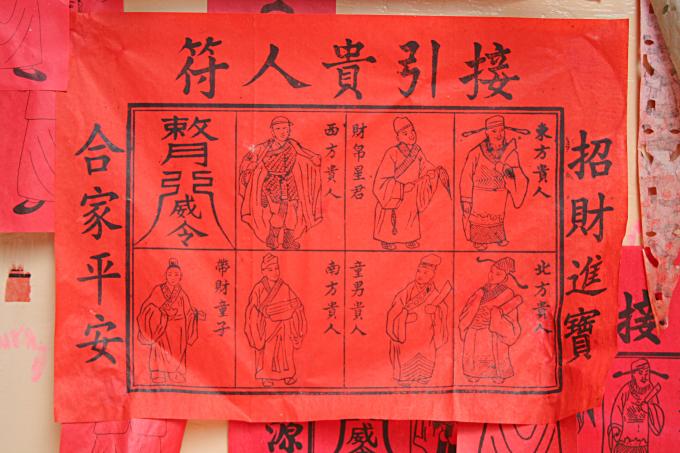 接引貴人符
招財進寶
東方貴人
財帛星君
西方貴人
威令
北方貴人
童男貴人
南方貴人
帶財童子
合家平安
接
源
威令